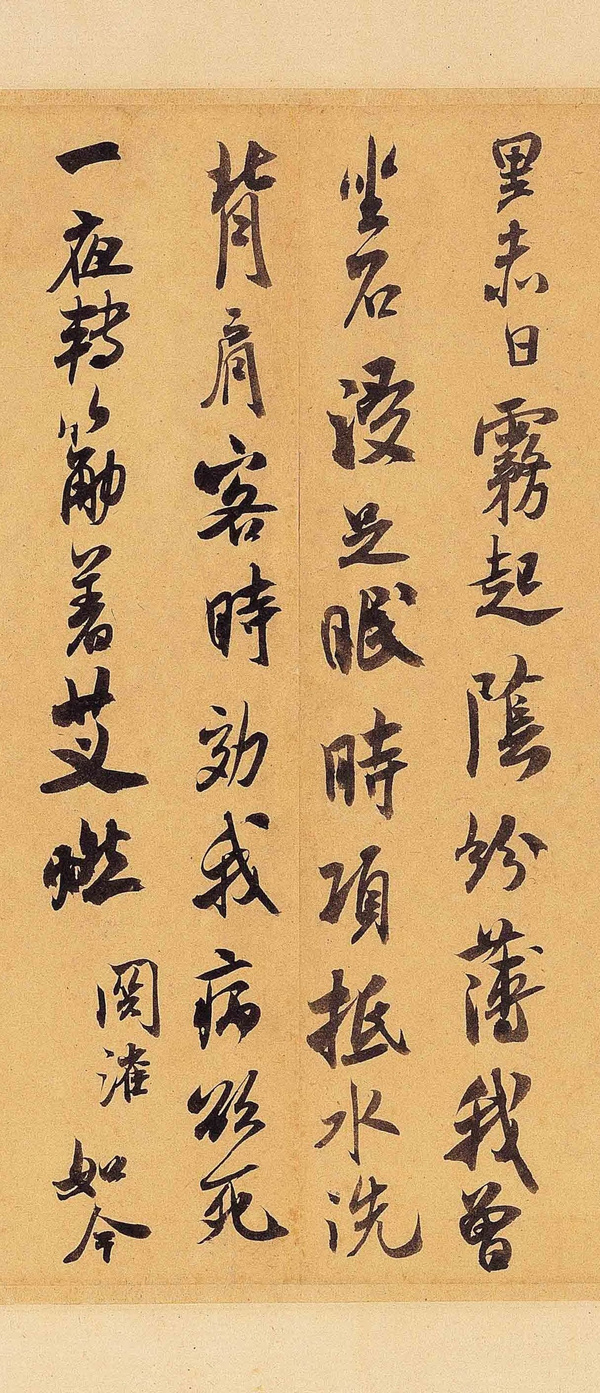 里赤日霧起陰紛薄我曾
坐石浸足眠時項抵水洗
背肩客時効我病欲死
一夜轉筋着艾燃
如今